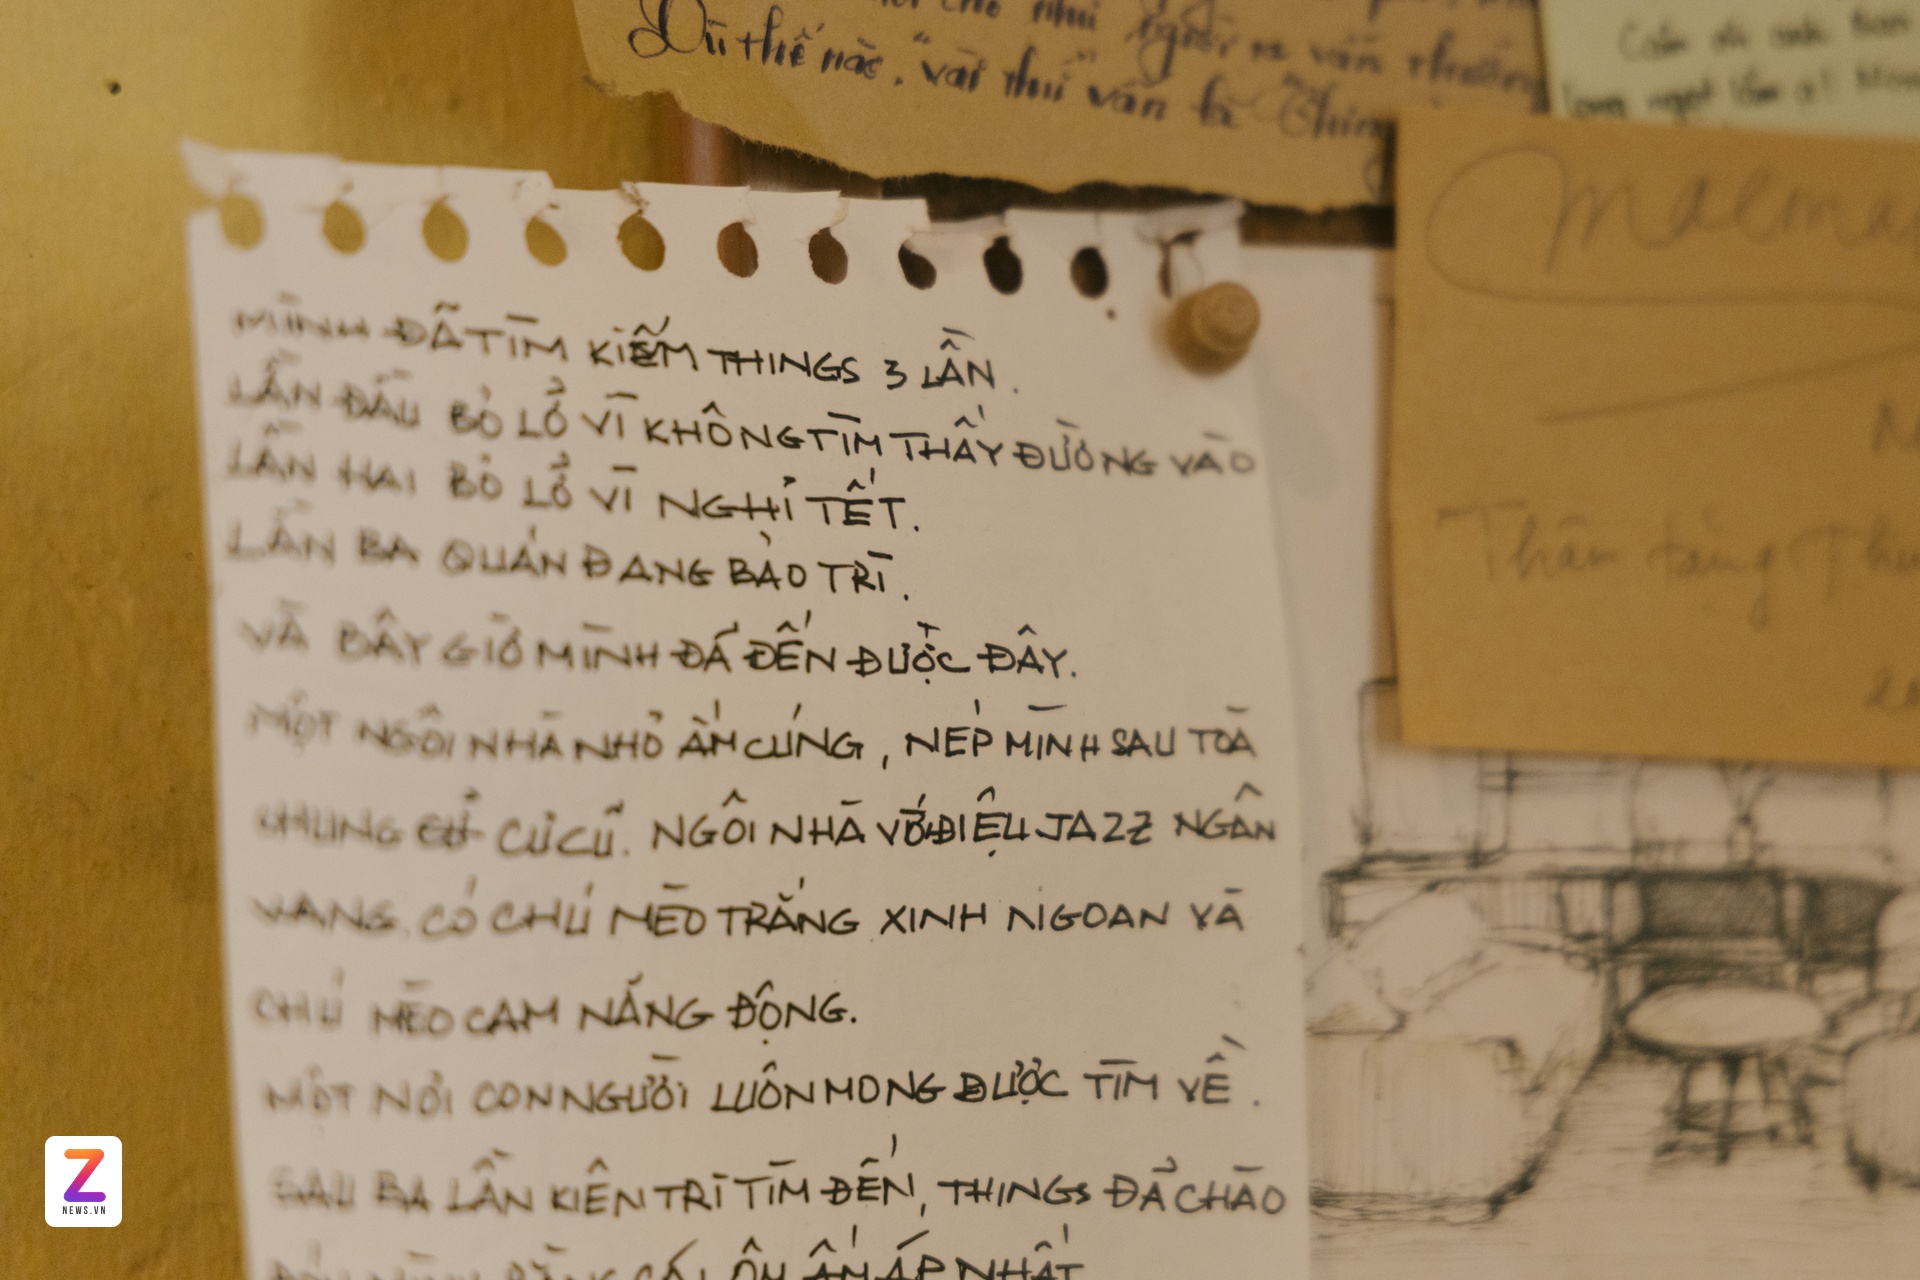 Dù thế nào, "vài thứ" vẫn là
MÌNH ĐÃ TÌM KIẾM THINGS 3 LẦN.
LẦN ĐẦU BỎ LỠ VÌ KHÔNG TÌM THẤY ĐƯỜNG VÀO
LẦN HAI BỎ LỠ VÌ NGHỈ TẾT.
LẦN BA QUÁN ĐANG BẢO TRÌ.
VÀ BÂY GIỜ MÌNH ĐÃ ĐẾN ĐƯỢC ĐÂY.
MỘT NGÔI NHÀ NHỎ ẤM CÚNG, NÉP MÌNH SAU TOÀ
CHUNG CƯ CŨ. NGÔI NHÀ VỚI ĐIỆU JAZZ NGÂN
VANG, CÓ CHÚ MÈO TRẮNG XINH NGOAN VÀ
CHÚ MÈO CAM NĂNG ĐỘNG.
MỘT NƠI CON NGƯỜI LUÔN MONG ĐƯỢC TÌM VỀ.
SAU BA LẦN KIÊN TRÌ TÌM ĐẾN, THINGS ĐÃ CHÀO
ĐÓN MÌNH BẰNG CÁI ÔM ẤM ÁP NHẤT
Z
NEWS.VN